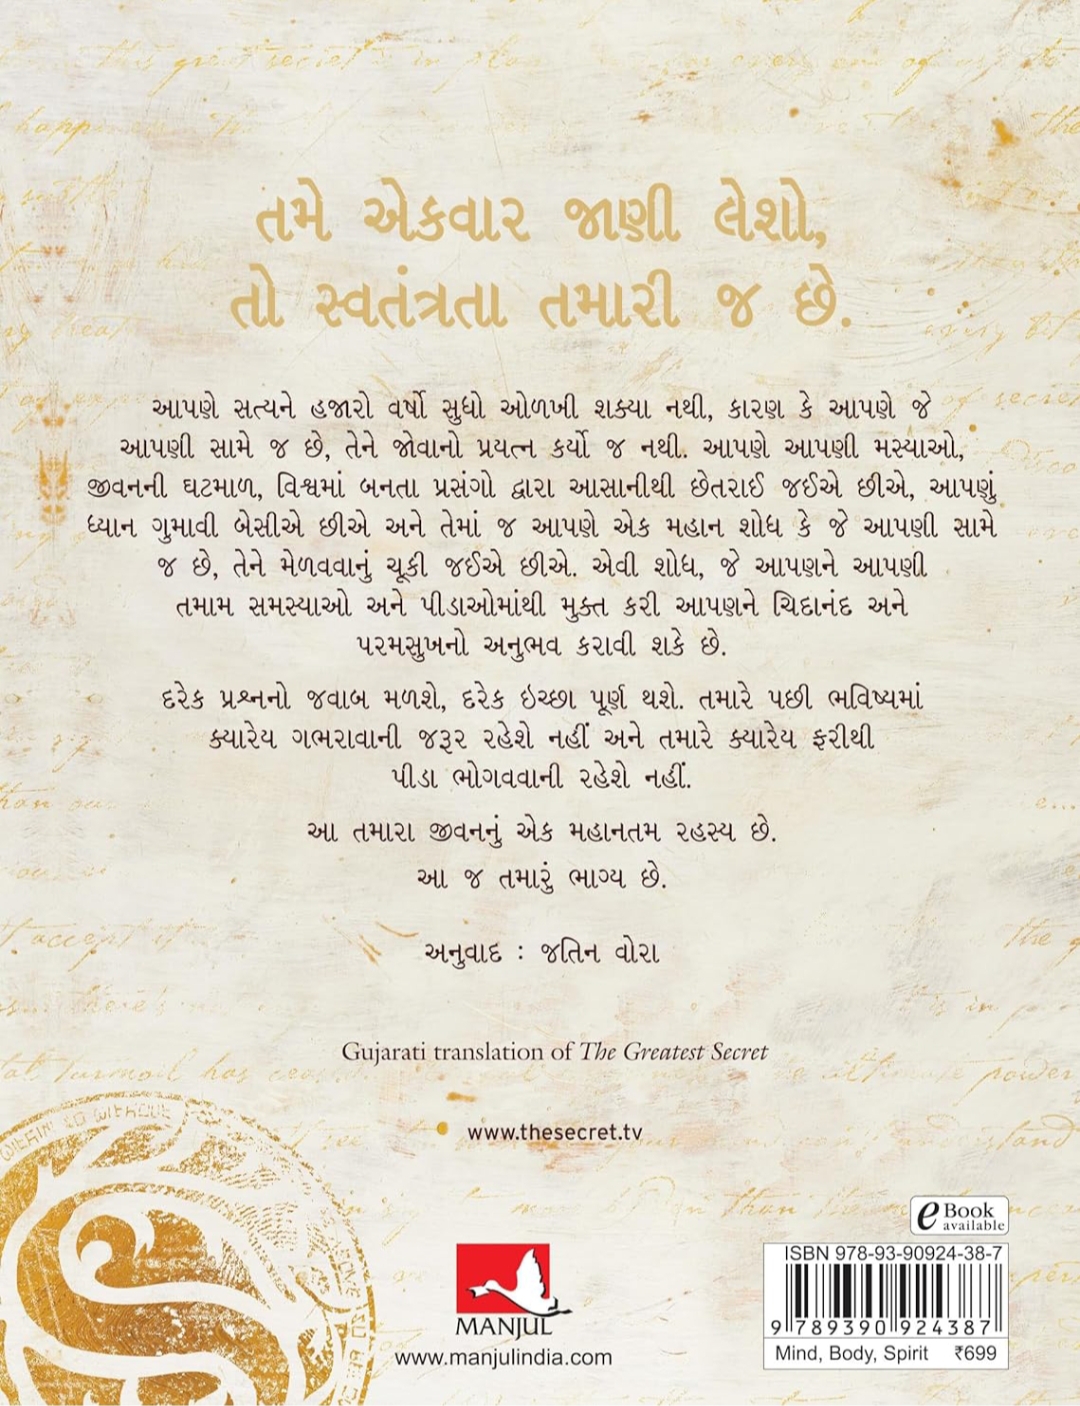 તમે એકવાર જાણી લેશો,
તો સ્વતંત્રતા તમારી જ છે.
આપણે સત્યને હજારો વર્ષો સુધો ઓળખી શક્યા નથી, કારણ કે આપણે જે
આપણી સામે જ છે, તેને જોવાનો પ્રયત્ન કર્યો જ નથી. આપણે આપણી મસ્યાઓ,
જીવનની ઘટમાળ, વિશ્વમાં બનતા પ્રસંગો દ્વારા આસાનીથી છેતરાઈ જઈએ છીએ, આપણું
ધ્યાન ગુમાવી બેસીએ છીએ અને તેમાં જ આપણે એક મહાન શોધ કે જે આપણી સામે
જ છે, તેને મેળવવાનું ચૂકી જઈએ છીએ. એવી શોધ, જે આપણને આપણી
તમામ સમસ્યાઓ અને પીડાઓમાંથી મુક્ત કરી આપણને ચિદાનંદ અને
પરમસુખનો અનુભવ કરાવી શકે છે.
દરેક પ્રશ્નનો જવાબ મળશે, દરેક ઇચ્છા પૂર્ણ થશે. તમારે પછી ભવિષ્યમાં
ક્યારેય ગભરાવાની જરૂર રહેશે નહીં અને તમારે ક્યારેય ફરીથી
પીડા ભોગવવાની રહેશે નહીં.
આ તમારા જીવનનું એક મહાનતમ રહસ્ય છે.
આ જ તમારું ભાગ્ય છે.
અનુવાદ : જતિન વોરા
Gujarati translation of The Greatest Secret
www.thesecret.tv
e Book
available
ISBN 978-93-90924-38-7
9 789390 924387
Mind, Body, Spirit ₹699
MANJUL
www.manjulindia.com